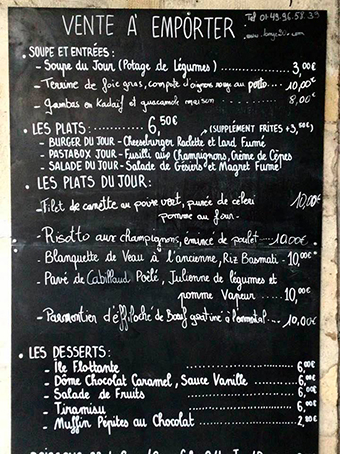 VENTE A' EMPÒRTER
Tel 01.49.96.58.39
www. .com
• SOUPE ET ENTRÉES :
- Soupe du Jour (Potage de Légumes) 3,00€
- Terrine de foie gras, compote d'oignons rouge au porto... 10,00€
- Gambas en Kadaïf et guacamole maison 8,00€
• LES PLATS : 6,50€
(SUPPLÉMENT FRITES +3,50€)
- BURGER DU JOUR - Cheeseburger Raclette et Lard Fumé
- PASTABOX JOUR - Fusilli aux Champignons, Crème de Cêpes
- SALADE DU JOUR - Salade de Gésiers et Magret Fumé
• LES PLATS DU JOUR :
- Filet de canette au poivre vert, purée de céleri 10,00€
pomme au four.
- Risotto aux champignons, émincé de poulet - 10.00€
- Blanquette de Veau à l'ancienne, Riz Basmati - 10,00€
- Pavé de Cabillaud Poêlé, Julienne de légumes et
pomme Vapeur ..... 10,00€
- Parmentier d'éffiloché de Bœuf gratiné à l'emmental... 10,00€
• LES DESSERTS :
- Île Flottante 6,00€
- Dôme Chocolat Caramel, Sauce Vanille 6,00€
- Salade de Fruits 6,00€
- Tiramisu 6,00€
- Muffin Pépites au Chocolat 2,80€